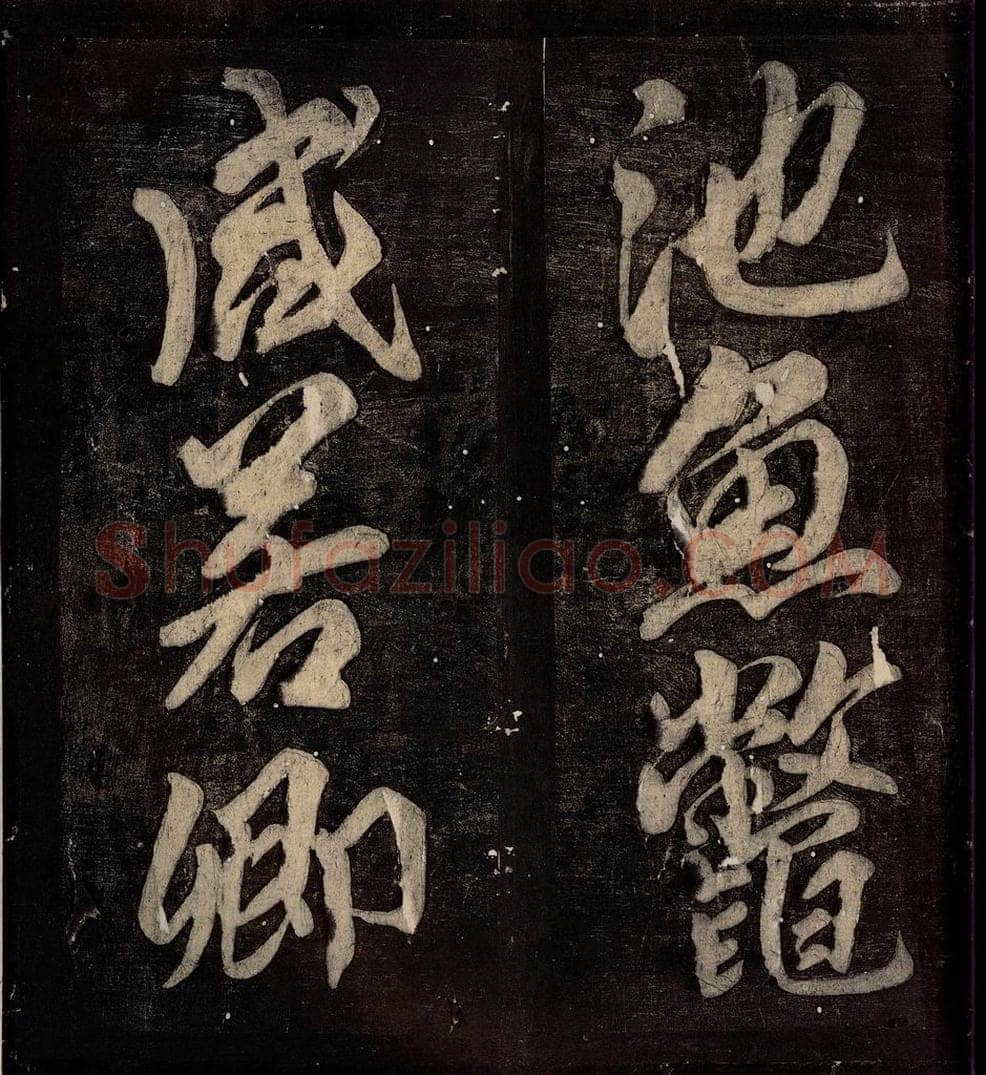 池魚鼈
咸若卿
Shufaziliao.COM